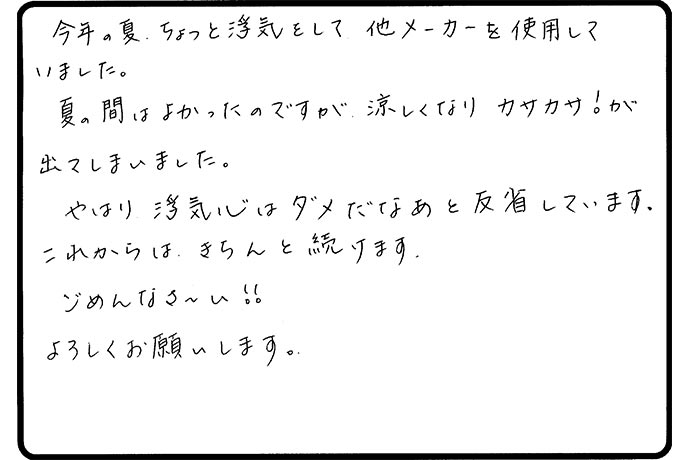 今年の夏、ちょっと浮気をして 他メーカーを使用して
いました。
夏の間はよかったのですが、涼しくなり カサカサ!が
出てしまいました。
やはり 浮気心はダメだなあと反省しています。
これからは、きちんと続けます。
ごめんなさ〜い!!
よろしくお願いします。